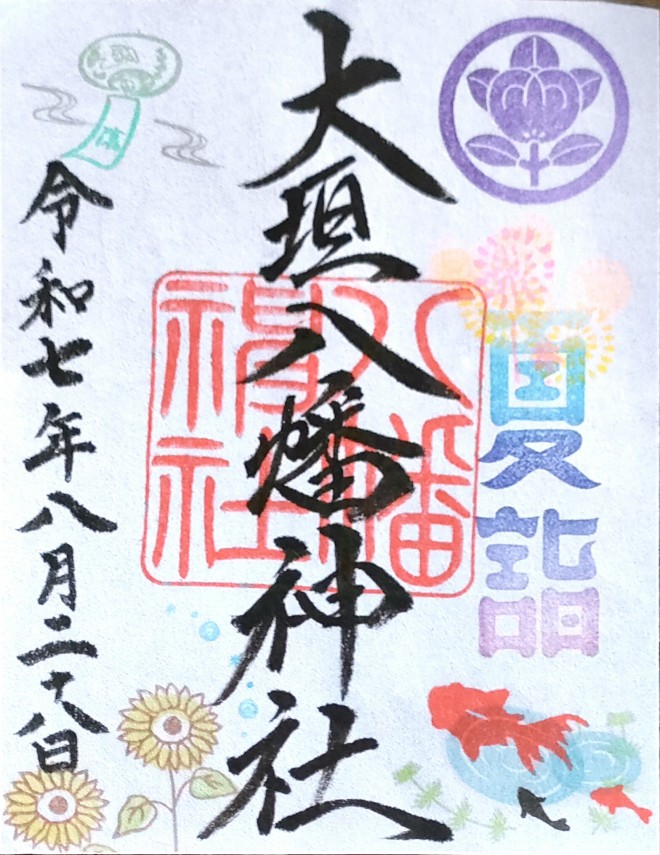 夏詣
大垣八幡神社
八幡
神社
令和七年八月二十八日